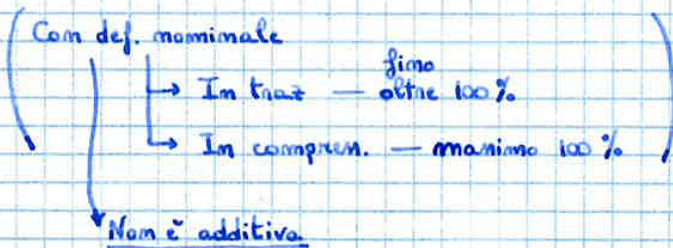 Con def. nominale
fino
→ In traz — oltre 100%
→ In compren. — massimo 100%
Non è additiva